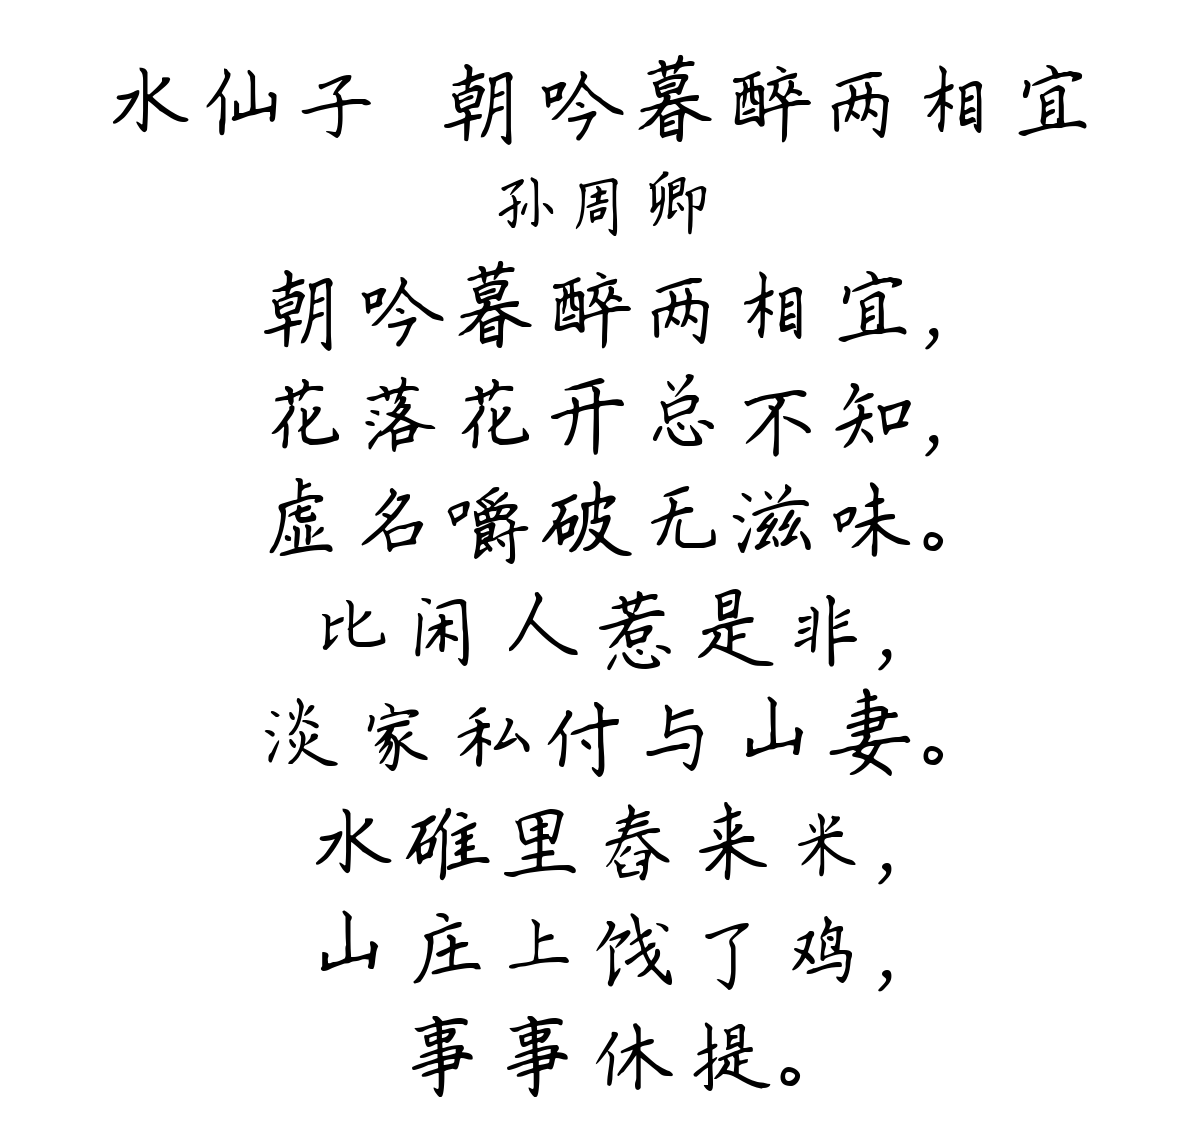 水仙子 朝吟暮醉两相宜
孙周卿
朝吟暮醉两相宜，
花落花开总不知，
虚名嚼破无滋味。
比闲人惹是非，
淡家私付与山妻。
水碓里舂来米，
山庄上饯了鸡，
事事休提。